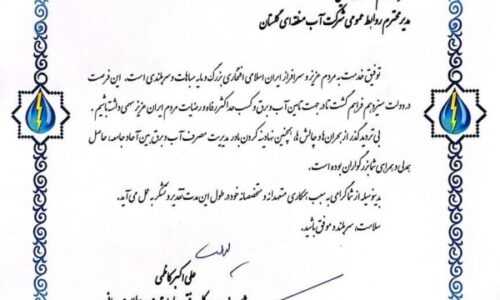 مدیر محترم روابط عمومی شرکت آب منطقه ای گلستان
توفیق خدمت به مردم عزیز و سرافراز ایران اسلامی افتخاری بزرگ و مایه مباهات و سربلندی است. این فرصت
در دولت سیزدهم فراهم گشت تا در جهت تامین آب و برق و کسب حداکثر رفاه و رضایت مردم ایران عزیز سهمی داشته باشیم.
بی تردید گذر از بحران ها و چالش ها، همچنین نهادینه کردن باور مدیریت مصرف آب و برق بین آحاد جامعه، حاصل
همدلی و همراهی شما بزرگواران بوده است.
بدینوسیله از شما گرامی به سبب همکاری متعهدانه و متخصصانه خود در طول این مدت تقدیر و تشکر به عمل می آید.
سلامت، سربلند و موفق باشید.
علی اکبر کاظمی